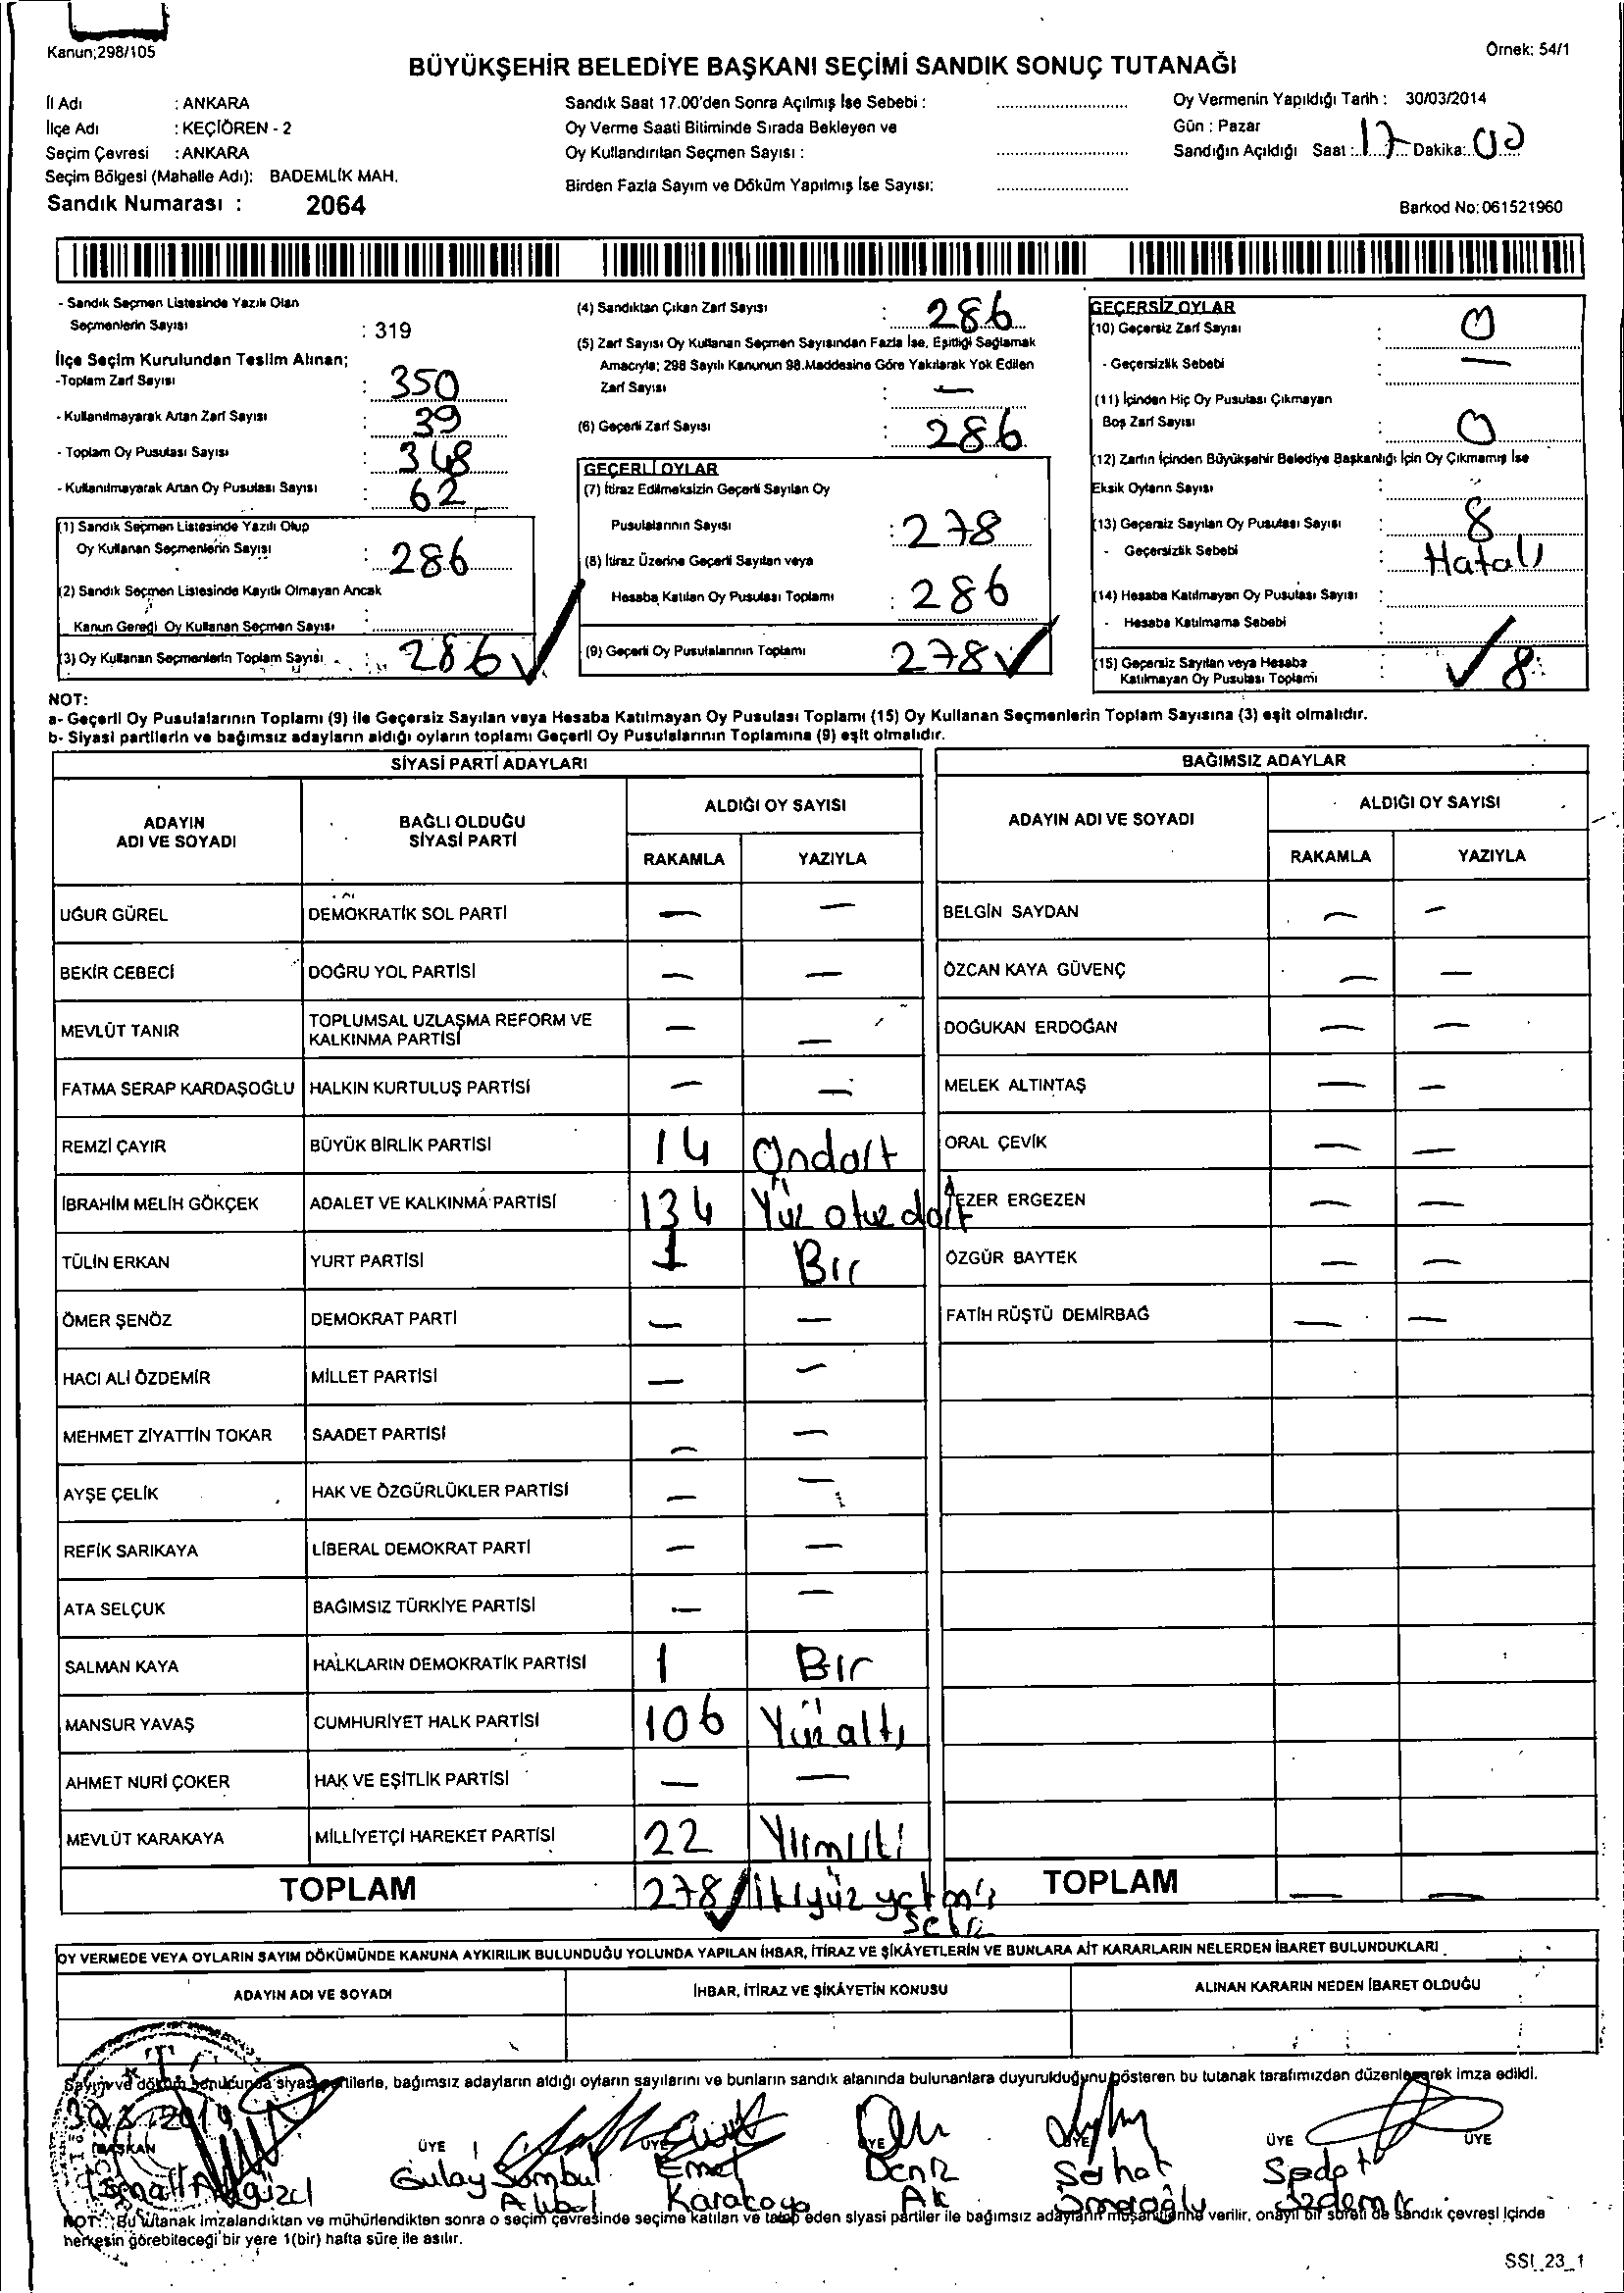 Kanun;298/105
Örnek: 54/1
BÜYÜKŞEHİR BELEDİYE BAŞKANI SEÇİMİ SANDIK SONUÇ TUTANAĞI
İl Adı : ANKARA
İlçe Adı : KEÇİÖREN - 2
Seçim Çevresi : ANKARA
Seçim Bölgesi (Mahalle Adı): BADEMLİK MAH.
Sandık Numarası : 2064
Sandık Saat 17.00'den Sonra Açılmış İse Sebebi :
Oy Verme Saati Bitiminde Sırada Bekleyen ve
Oy Kullandırılan Seçmen Sayısı :
Birden Fazla Sayım ve Döküm Yapılmış İse Sayısı:
Oy Vermenin Yapıldığı Tarih : 30/03/2014
Gün : Pazar
Sandığın Açıldığı Saat : 17 Dakika: 00
Barkod No: 061521960
- Sandık Seçmen Listesinde Yazılı Olan
Seçmenlerin Sayısı : 319
İlçe Seçim Kurulundan Teslim Alınan;
-Toplam Zarf Sayısı : 350
- Kullanılmayarak Artan Zarf Sayısı : 39
- Toplam Oy Pusulası Sayısı : 348
- Kullanılmayarak Artan Oy Pusulası Sayısı : 62
(1) Sandık Seçmen Listesinde Yazılı Olup
Oy Kullanan Seçmenlerin Sayısı : 286
(2) Sandık Seçmen Listesinde Kayıtlı Olmayan Ancak
Kanun Gereği Oy Kullanan Seçmen Sayısı :
(3) Oy Kullanan Seçmenlerin Toplam Sayısı : 286 ✓
(4) Sandıktan Çıkan Zarf Sayısı : 286
(5) Zarf Sayısı Oy Kullanan Seçmen Sayısından Fazla İse, Eşitliği Sağlamak
Amacıyla; 298 Sayılı Kanunun 98.Maddesine Göre Yakılarak Yok Edilen
Zarf Sayısı : —
(6) Geçerli Zarf Sayısı : 286
GEÇERLİ OYLAR
(7) İtiraz Edilmeksizin Geçerli Sayılan Oy
Pusulalarının Sayısı : 278
(8) İtiraz Üzerine Geçerli Sayılan veya
Hesaba Katılan Oy Pusulası Toplamı : 286
(9) Geçerli Oy Pusulalarının Toplamı 278 ✓
GEÇERSİZ OYLAR
(10) Geçersiz Zarf Sayısı : 0
- Geçersizlik Sebebi : —
(11) İçinden Hiç Oy Pusulası Çıkmayan
Boş Zarf Sayısı : 0
(12) Zarfın İçinden Büyükşehir Belediye Başkanlığı İçin Oy Çıkmamış İse
Eksik Oyların Sayısı :
(13) Geçersiz Sayılan Oy Pusulası Sayısı : 8
- Geçersizlik Sebebi : Hatalı
(14) Hesaba Katılmayan Oy Pusulası Sayısı :
- Hesaba Katılmama Sebebi :
(15) Geçersiz Sayılan veya Hesaba
Katılmayan Oy Pusulası Toplamı : ✓ 8
NOT:
a- Geçerli Oy Pusulalarının Toplamı (9) ile Geçersiz Sayılan veya Hesaba Katılmayan Oy Pusulası Toplamı (15) Oy Kullanan Seçmenlerin Toplam Sayısına (3) eşit olmalıdır.
b- Siyasi partilerin ve bağımsız adayların aldığı oyların toplamı Geçerli Oy Pusulalarının Toplamına (9) eşit olmalıdır.
SİYASİ PARTİ ADAYLARI
ADAYIN ADI VE SOYADI BAĞLI OLDUĞU SİYASİ PARTİ ALDIĞI OY SAYISI
RAKAMLA YAZIYLA
UĞUR GÜREL DEMOKRATİK SOL PARTİ — —
BEKİR CEBECİ DOĞRU YOL PARTİSİ — —
MEVLÜT TANIR TOPLUMSAL UZLAŞMA REFORM VE KALKINMA PARTİSİ — —
FATMA SERAP KARDAŞOĞLU HALKIN KURTULUŞ PARTİSİ — —
REMZİ ÇAYIR BÜYÜK BİRLİK PARTİSİ 14 Ondört
İBRAHİM MELİH GÖKÇEK ADALET VE KALKINMA PARTİSİ 134 Yüz otuz dört
TÜLİN ERKAN YURT PARTİSİ 1 Bir
ÖMER ŞENÖZ DEMOKRAT PARTİ — —
HACI ALİ ÖZDEMİR MİLLET PARTİSİ — —
MEHMET ZİYATTİN TOKAR SAADET PARTİSİ — —
AYŞE ÇELİK HAK VE ÖZGÜRLÜKLER PARTİSİ — —
REFİK SARIKAYA LİBERAL DEMOKRAT PARTİ — —
ATA SELÇUK BAĞIMSIZ TÜRKİYE PARTİSİ — —
SALMAN KAYA HALKLARIN DEMOKRATİK PARTİSİ 1 Bir
MANSUR YAVAŞ CUMHURİYET HALK PARTİSİ 106 Yüz altı
AHMET NURİ ÇOKER HAK VE EŞİTLİK PARTİSİ — —
MEVLÜT KARAKAYA MİLLİYETÇİ HAREKET PARTİSİ 22 Yirmiiki
TOPLAM 278 ✓ ikiyüz yetmiş sekiz
BAĞIMSIZ ADAYLAR
ADAYIN ADI VE SOYADI ALDIĞI OY SAYISI
RAKAMLA YAZIYLA
BELGİN SAYDAN — —
ÖZCAN KAYA GÜVENÇ — —
DOĞUKAN ERDOĞAN — —
MELEK ALTINTAŞ — —
ORAL ÇEVİK — —
EZER ERGEZEN — —
ÖZGÜR BAYTEK — —
FATİH RÜŞTÜ DEMİRBAĞ — —
TOPLAM — —
OY VERMEDE VEYA OYLARIN SAYIM DÖKÜMÜNDE KANUNA AYKIRILIK BULUNDUĞU YOLUNDA YAPILAN İHBAR, İTİRAZ VE ŞİKÂYETLERİN VE BUNLARA AİT KARARLARIN NELERDEN İBARET BULUNDUKLARI
ADAYIN ADI VE SOYADI İHBAR, İTİRAZ VE ŞİKÂYETİN KONUSU ALINAN KARARIN NEDEN İBARET OLDUĞU
Sayım ve döküm sonucunda siyasi partilerle, bağımsız adayların aldığı oyların sayılarını ve bunların sandık alanında bulunanlara duyurulduğunu gösteren bu tutanak tarafımızdan düzenlenerek imza edildi.
BAŞKAN ÜYE ÜYE ÜYE ÜYE ÜYE ÜYE
İsmail Gülay Sümbül Emel Karakaya Deniz Ak Serhat Ömeroğlu Sedat Özdemir
NOT: Bu tutanak imzalandıktan ve mühürlendikten sonra o seçim çevresinde seçime katılan ve talep eden siyasi partiler ile bağımsız adayların müşahitlerine verilir, onaylı bir sureti de sandık çevresi içinde
herkesin görebileceği bir yere 1(bir) hafta süre ile asılır.
SSI_23_1